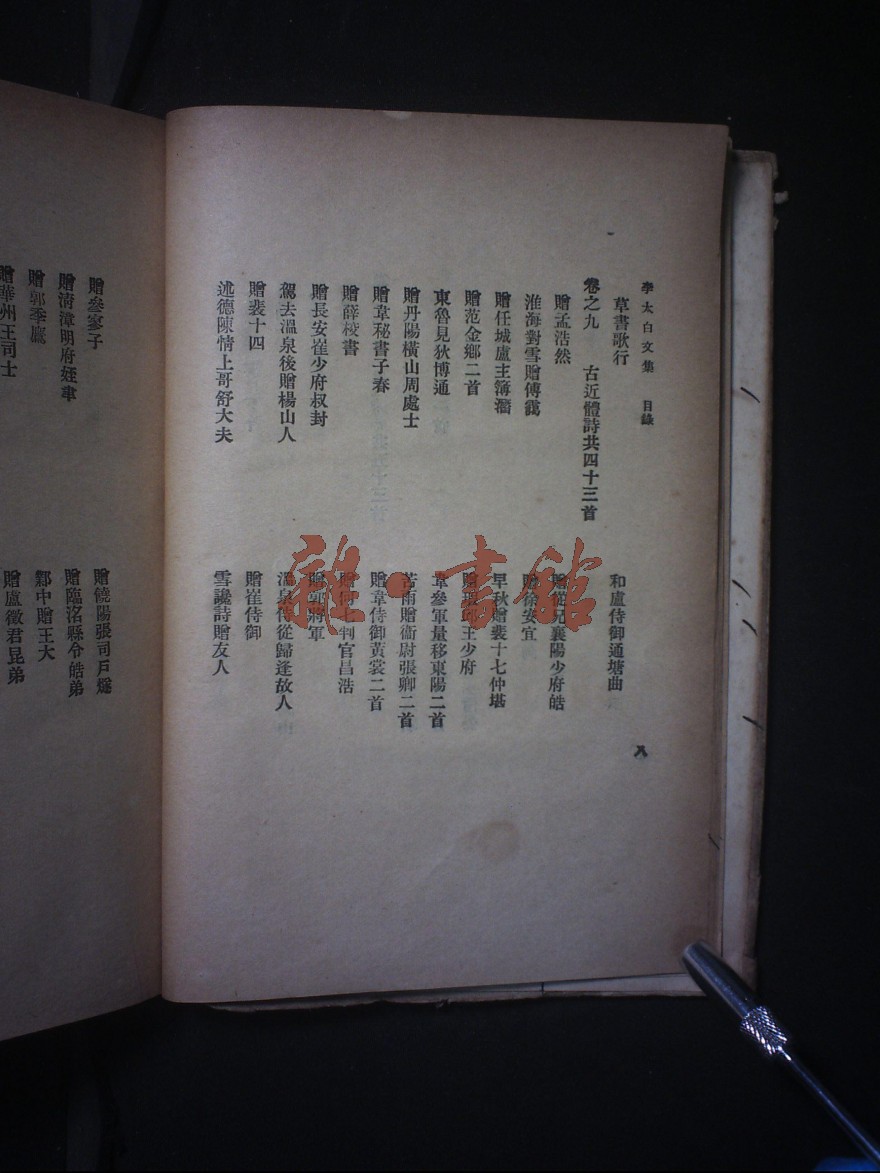 李太白文集　目錄
草書歌行
和盧侍御通塘曲
卷之九　古近體詩共四十三首
贈孟浩然
贈從兄襄陽少府皓
淮海對雪贈傅靄
贈徐安宜
贈任城盧主簿潛
早秋贈裴十七仲堪
贈范金鄉二首
贈瑕邱王少府
東魯見狄博通
韋參軍量移東陽二首
贈丹陽橫山周處士
苦雨贈衞尉張卿二首
贈韋秘書子春
贈韋侍御黃裳二首
贈薛校書
贈何七判官昌浩
贈長安崔少府叔封
贈郭將軍
駕去溫泉後贈楊山人
溫泉侍從歸逢故人
贈裴十四
贈崔侍御
述德陳情上哥舒大夫
雪讒詩贈友人
八
贈參寥子
贈饒陽張司戶燧
贈清漳明府姪聿
贈臨洺縣令皓弟
贈郭季鷹
鄴中贈王大
贈華州王司士
贈盧徵君昆弟
雜·書館